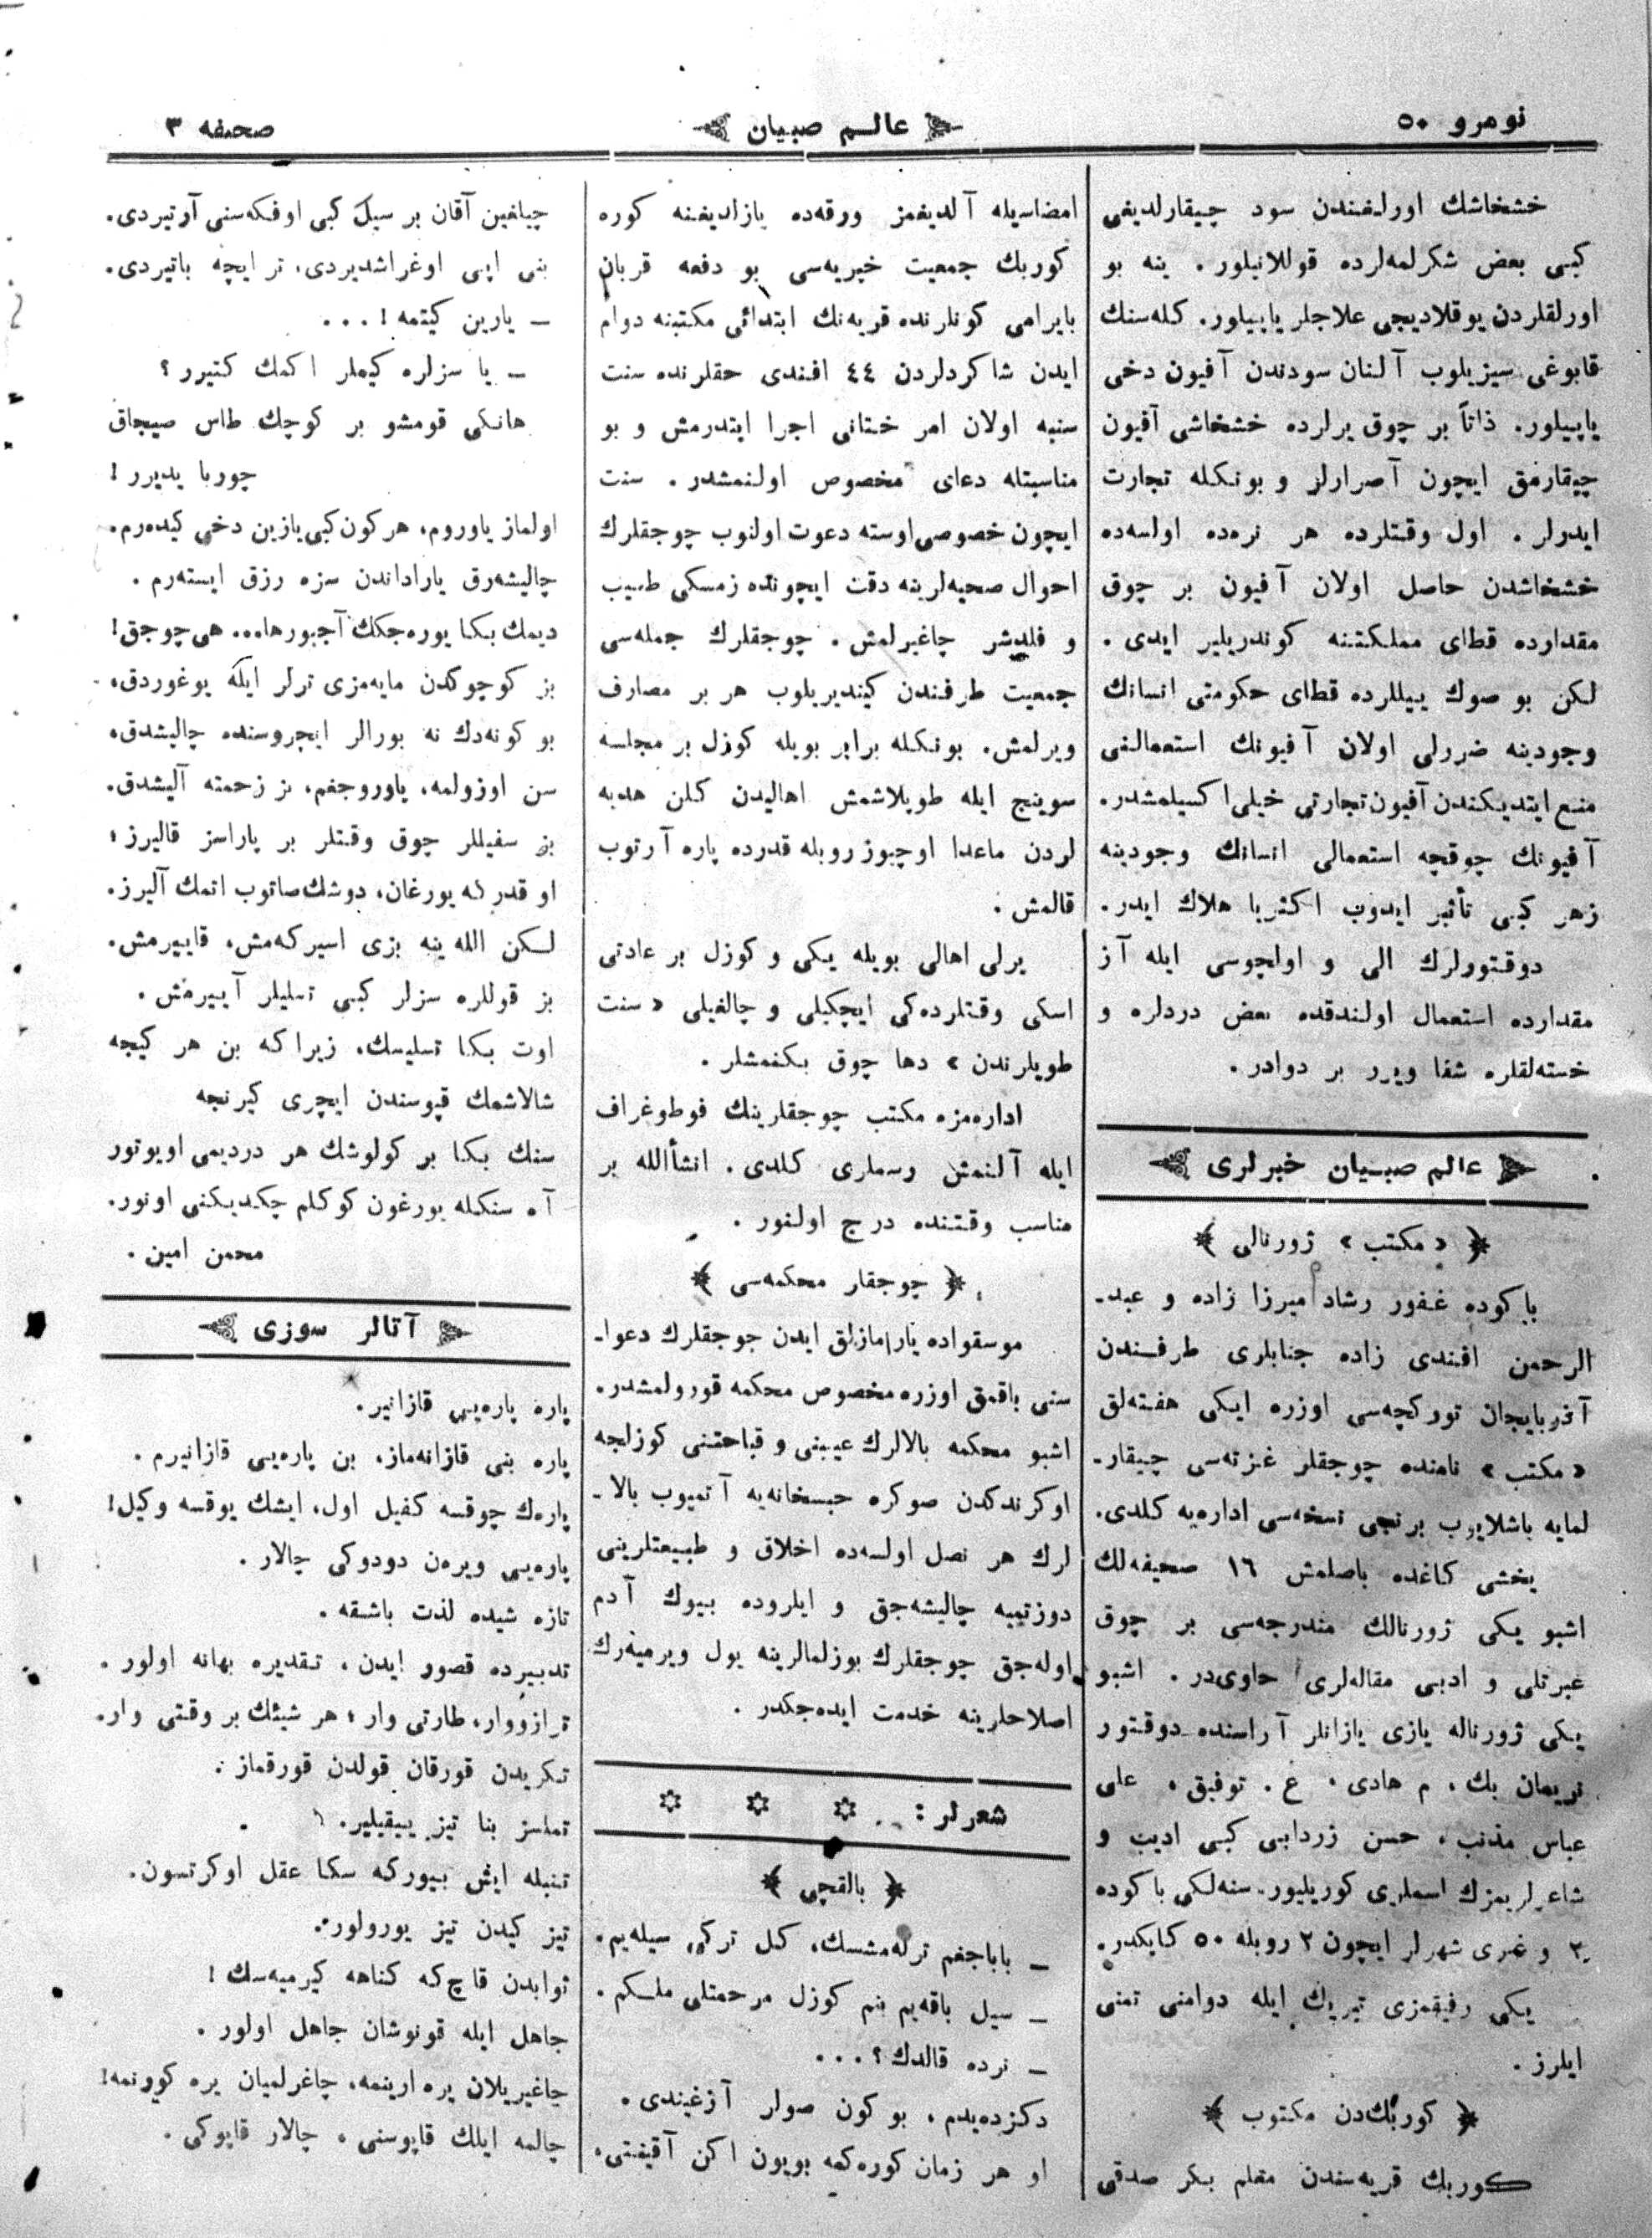 نومرو ٥٠
عالم صبيان
صحيفه ٣
خشخاشك اورلغندن سود چيقارلديغى
كبى بعض شكرلمه‌لرده قوللانيلور. ينه بو
اورلقلردن يوقلاديجى علاجلر ياپيلور. كله‌سنك
قابوغى سيزيلوب آلنان سودندن آفيون دخى
ياپيلور. ذاتاً بر چوق يرلرده خشخاشى آفيون
چيقارمق ايچون آصرارلر و بونكله تجارت
ايدولر. اول وقتلرده هر نره‌ده اولسه‌ده
خشخاشدن حاصل اولان آفيون بر چوق
مقدارده قطاى مملكتنه كوندريلير ايدى.
لكن بو صوك ييللرده قطاى حكومتى انسانك
وجودينه ضررلى اولان آفيونك استعمالنى
منع ايتديكندن آفيون تجارتى خيلى اكسيلمشدر.
آفيونك چوقچه استعمالى انسانك وجودينه
زهر كبى تأثير ايدوب اكثريا هلاك ايدر.
دوقتورلرك الى و اولچوسى ايله آز
مقدارده استعمال اولندقده بعض دردلره و
خسته‌لقلره شفا ويرر بر دوادر.
عالم صبيان خبرلرى
﴿ «مكتب» ژورنالى ﴾
باكوده غفور رشاد ميرزا زاده و عبد-
الرحمن افندى زاده جنابلرى طرفندن
آذربايجان توركچه‌سى اوزره ايكى هفته‌لق
«مكتب» نامنده چوجقلر غزته‌سى چيقار-
لمايه باشلايوب برنجى نسخه‌سى اداره‌يه كلدى.
يخشى كاغده باصلمش ١٦ صحيفه‌لك
اشبو يكى ژورنالك مندرجه‌سى بر چوق
عبرتلى و ادبى مقاله‌لرى حاوى‌در. اشبو
يكى ژورناله يازى يازانلر آراسنده دوقتور
نريمان بك، م هادى، غ. توفيق، على
عباس مذنب، حسن زردابى كبى اديب و
شاعرلريمزك اسملرى كوريليور. سنه‌لكى باكوده
٢ و غيرى شهرلر ايچون ٢ روبله ٥٠ كاپكدر.
يكى رفيقمزى تبريك ايله دوامنى تمنى
ايلرز.
﴿ كوربك‌دن مكتوب ﴾
كوربك قريه‌سندن معلم بكر صدقى
امضاسيله آلديغمز ورقه‌ده يازلديغنه كوره
كوربك جمعيت خيريه‌سى بو دفعه قربان
بايرامى كونلرنده قريه‌نك ابتدائى مكتبنه دوام
ايدن شاكردلردن ٤٤ افندى حقلرنده سنت
سنيه اولان امر ختانى اجرا ايتدرمش و بو
مناسبتله دعاى مخصوص اولنمشدر. سنت
ايچون خصوصى اوسته دعوت اولنوب چوجقلرك
احوال صحيه‌لرينه دقت ايچونده زمسكى طبيب
و فلدشر چاغيرلمش. چوجقلرك جمله‌سى
جمعيت طرفندن كينديريلوب هر بر مصارف
ويرلمش. بونكله برابر بويله كوزل بر مجلسه
سوينج ايله طوپلاشمش اهاليدن كلن هديه
لردن ماعدا اوچيوز روبله قدرده پاره آرتوب
قالمش.
يرلى اهالى بويله يكى و كوزل بر عادتى
اسكى وقتلرده‌كى ايچكيلى و چالغيلى «سنت
طويلرندن» دها چوق بكنمشلر.
اداره‌مزه مكتب چوجقلرينك فوطوغراف
ايله آلنمش رسملرى كلدى. انشأالله بر
مناسب وقتنده درج اولنور.
﴿ چوجقلر محكمه‌سى ﴾
موسقواده يارامازلق ايدن چوجقلرك دعوا-
سنى باقمق اوزره مخصوص محكمه قورولمشدر.
اشبو محكمه بالالرك عيبنى و قباحتنى كوزلجه
اوكرندكدن صوكره حبسخانه‌يه آتميوب بالا-
لرك هر نصل اولسه‌ده اخلاق و طبيعتلرينى
دوزتميه چاليشه‌جق و ايلروده بيوك آدم
اوله‌جق چوجقلرك بوزلمالرينه يول ويرميه‌رك
اصلاحلرينه خدمت ايده‌جكدر.
شعرلر:
﴿ بالقچى ﴾
— باباجغم ترله‌مشسك، كل تركى سيله‌يم.
— سيل باقه‌يم بنم كوزل مرحمتلى ملكم.
— نرده قالدك؟...
دكزده‌يدم، بو كون صولر آزغيندى.
او هر زمان كوره‌كمه بويون اكن آقيفتى،
چيلغين آقان بر سيل كبى اوفكه‌سنى آرتيردى.
بنى اپى اوغراشديردى، تر ايچه باتيردى.
— يارين كيتمه!...
— يا سزلره كيملر اكمك كتيرر؟
هانكى قومشو بر كوچك طاس صيجاق
چوربا يديرر!
اولماز ياوروم، هر كون كبى يارين دخى كيده‌رم.
چاليشه‌رق ياراداندن سزه رزق ايسته‌رم.
ديمك بكا يوره‌جكك آجيورها... هى چوجق!
بز كوچوكدن مايه‌مزى ترلر ايله يوغوردق،
بو كونه‌دك نه بورالر ايچروسنده چاليشدق،
سن اوزولمه، ياوروجغم، بز زحمته آليشدق.
بز سفيللر چوق وقتلر بر پاراسز قاليرز؛
او قدر كه يورغان، دوشك صاتوب اتمك آليرز.
لكن الله ينه بزى اسيركه‌مش، قاييرمش.
بز قوللره سزلر كبى تسليلر آييرمش.
اوت بكا تسليسك، زيرا كه بن هر كيجه
شالاشمك قپوسندن ايچرى كيرنجه
سنك بكا بر كولوشك هر درديمى اويوتور
آه سنكله يورغون كوكلم چكديكنى اونور.
محمن امين.
آتالر سوزى
پاره پاره‌يى قازانير.
پاره بنى قازانه‌ماز، بن پاره‌يى قازانيرم.
پاره‌ك چوقسه كفيل اول، ايشك يوقسه وكيل!
پاره‌يى ويره‌ن دودوكى چالار.
تازه شيده لذت باشقه.
تدبيرده قصور ايدن، تقديره بهانه اولور.
ترازو وار، طارتى وار؛ هر شيئك بر وقتى وار.
تكريدن قورقان قولدن قورقماز.
تملسز بنا تيز ييقيلير.
تنبله ايش بيوركه سكا عقل اوكرتسون.
تيز كيدن تيز يورولور.
ثوابدن قاچ‌كه كناهه كيرميه‌سك!
جاهل ايله قونوشان جاهل اولور.
چاغيريلان يره ارينمه، چاغرلميان يره كورنمه!
چالمه ايلك قاپوسنى، چالار قاپوكى.